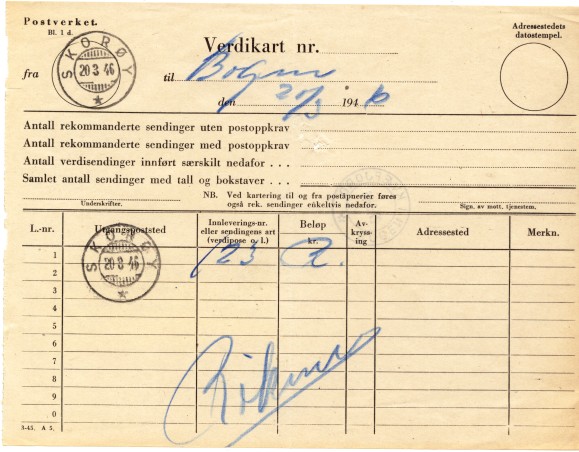 Postverket.
Bl. 1 d.
Verdikart nr.
Adressestedets
datostempel.
SKORØY
20 3 46
fra
til
den 20/3 1946
Antall rekommanderte sendinger uten postoppkrav
Antall rekommanderte sendinger med postoppkrav
Antall verdisendinger innført særskilt nedafor . . .
Samlet antall sendinger med tall og bokstaver . . .
Underskrifter.
NB. Ved kartering til og fra poståpnerier føres
også rek. sendinger enkeltvis nedafor.
Sign. av mott. tjenestem.
L.-nr.
Utgangspoststed
Innleverings-nr.
eller sendingens art
(verdipose o. l.)
Beløp
kr.
Av-
kryss-
ing
Adressested
Merkn.
SKORØY
20 3 46
1
123
2
3
4
5
6
7
8
9
0
3-45. A 5.